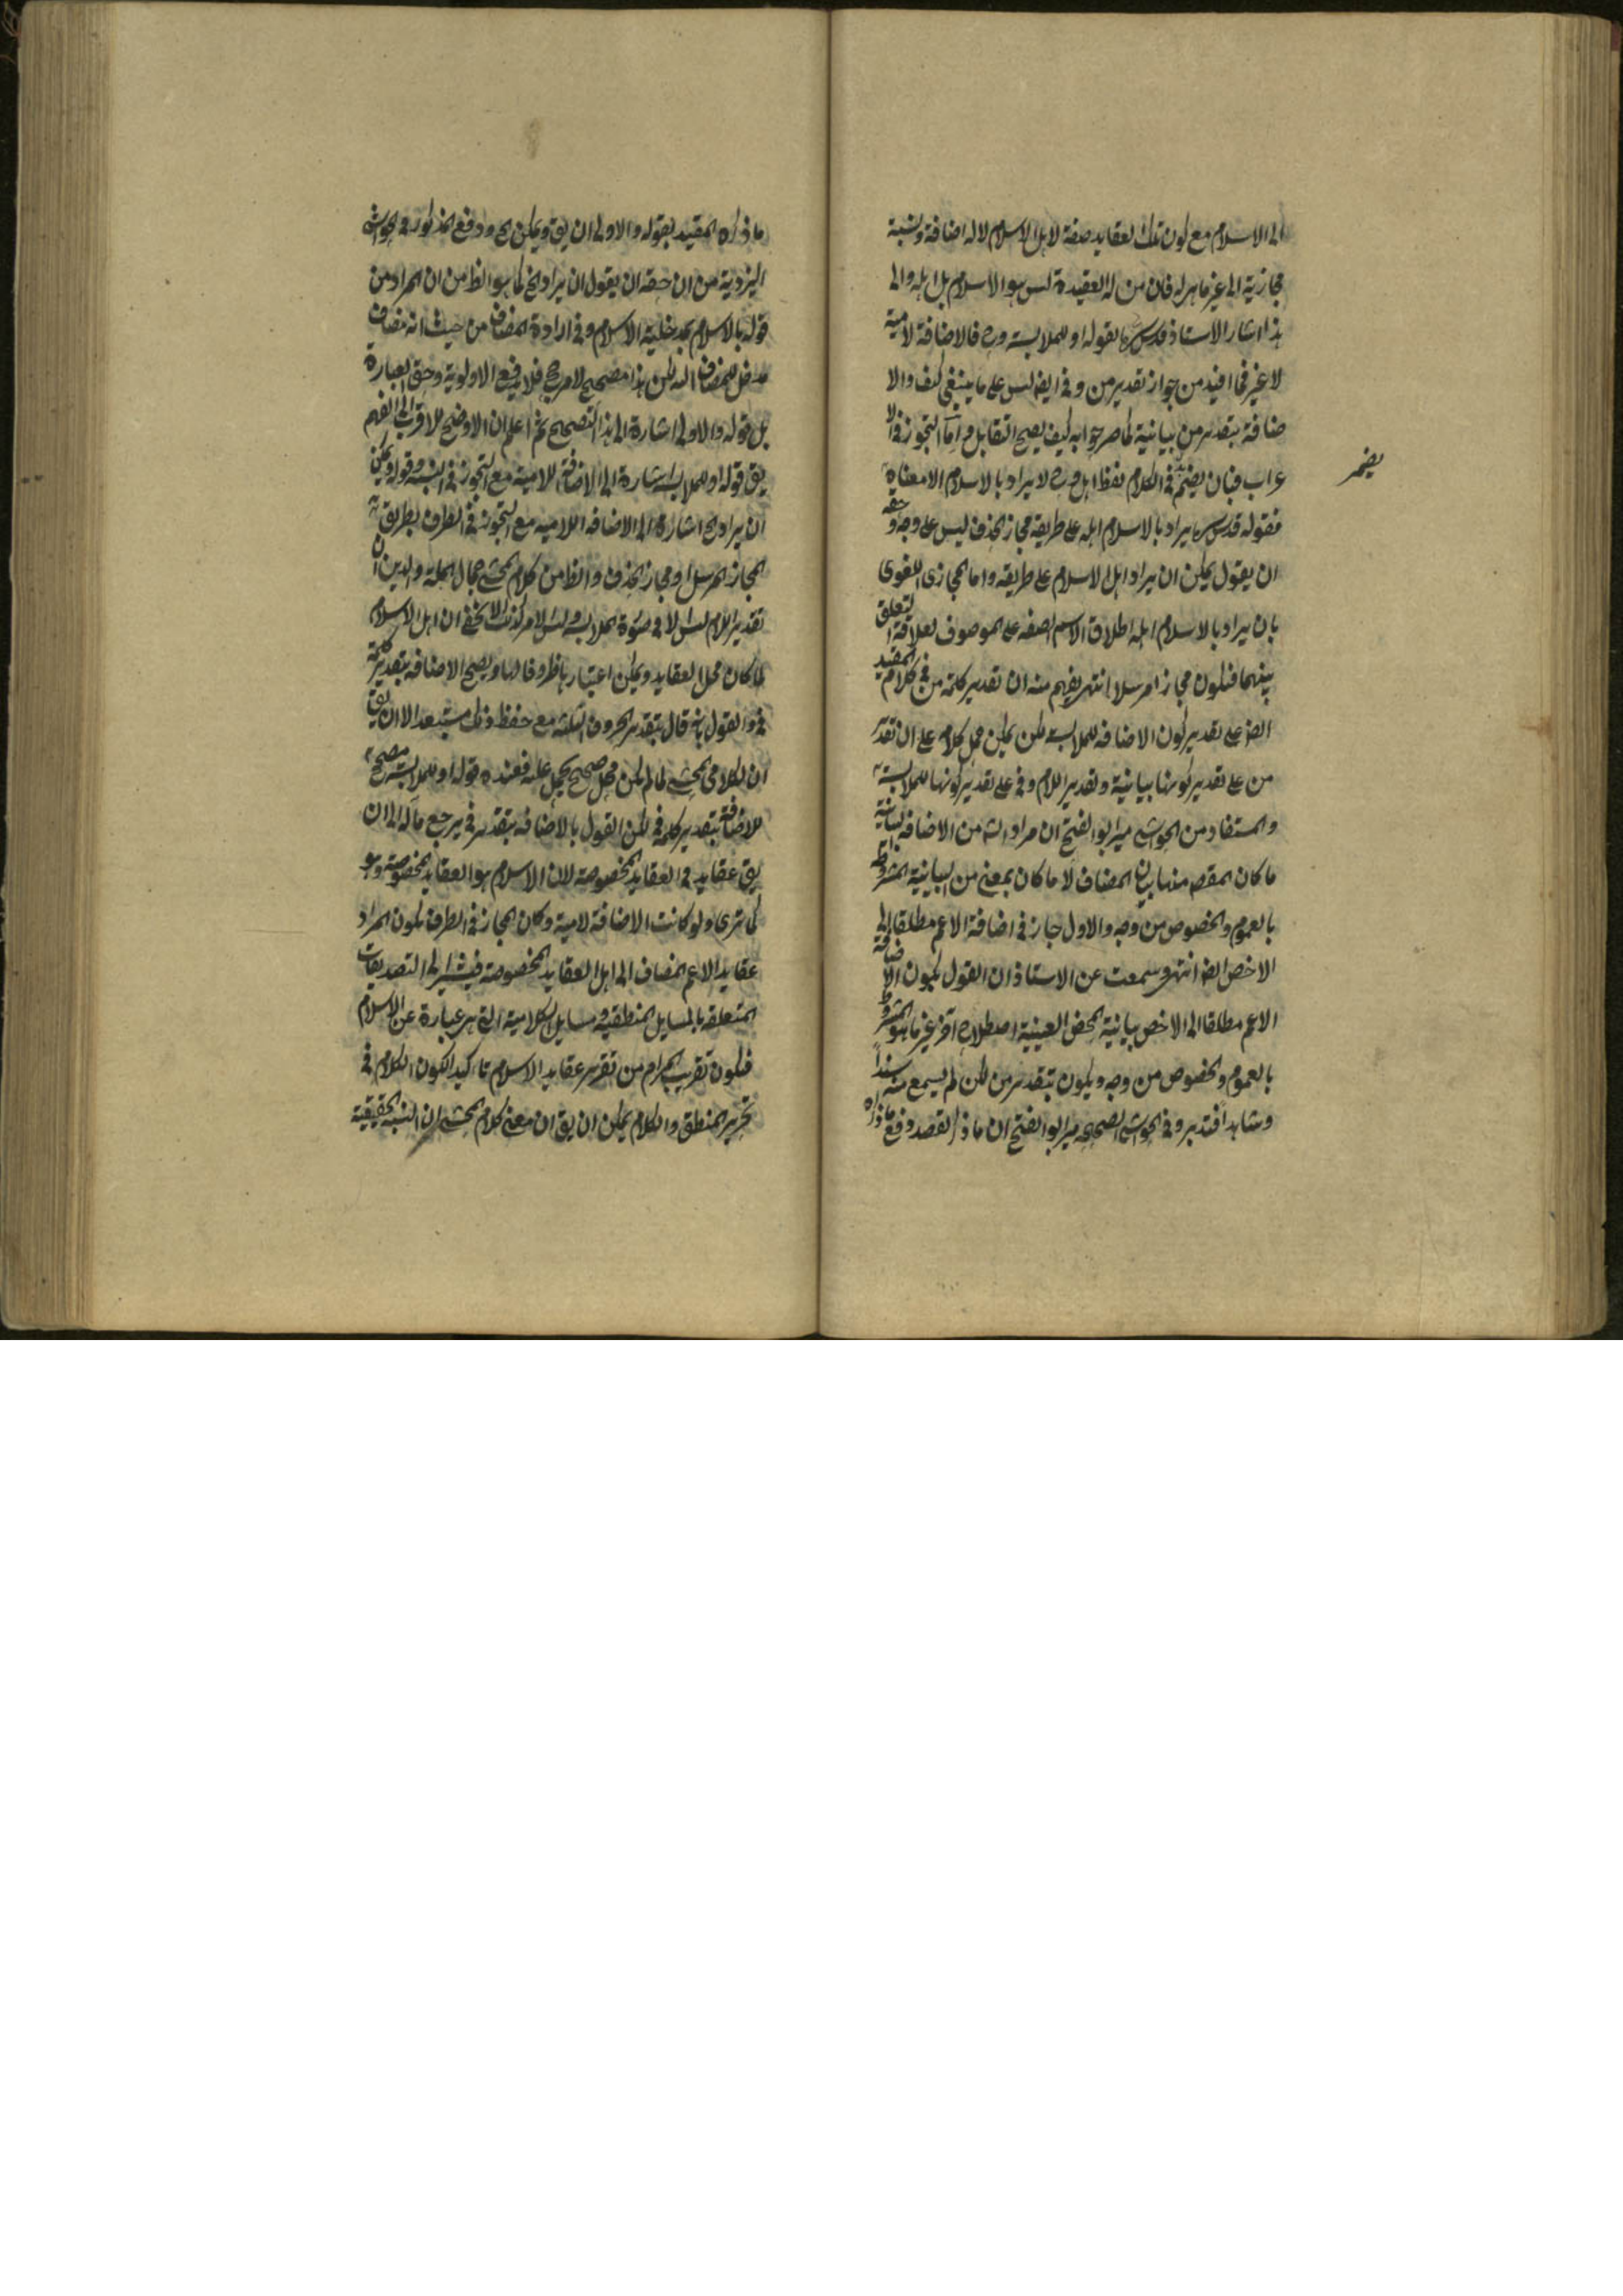 الى الاسلام مع كون تلك العقايد صفة لاهل الاسلام لا له اضافة ونسبة
مجازية الى غير ما هر له فان من له العقيدة ليس هو الاسلام بل اهله والى
هذا اشار الاستاذ قدس سره بقوله او للملابسة وح فالاضافة لامية
لا غير فما افيد من جواز تقدير من وفى ايضا ليس على ما ينبغى كيف والا
ضافة بتقدير من بيانية كما صرحوا به كيف يصح التقابل واما التجوز فى الا
عراب فبان يضمر فى الكلام لفظ اهل وح لا يراد بالاسلام الا معناه
يضمر
فقوله قدس سره يراد بالاسلام اهله على طريقة مجاز الحذف ليس على وجه وحقه
ان يقول يمكن ان يراد اهل الاسلام على طريقة واما المجازى اللغوى
بان يراد بالاسلام اهله اطلاق الاسم الصفه على الموصوف لعلاقة التعلق
بينهما فيكون مجازا مرسلا انتهى يفهم منه ان تقدير كلمة من فى كلام المقيد
ايضا على تقدير كون الاضافه للملابسة لكن يمكن حمل كلامه على ان تقدير
من على تقدير كونها بيانية وتقدير اللام وفى على تقدير كونها للملابسة
والمستفاد من الحواشى مير ابو الفتح ان مراد الشه من الاضافه البيانية
ما كان المقصد منها بيان المضاف لا ما كان بمعنى من البيانية المشروطة
بالعموم والخصوص من وجه والاول جاز فى اضافة الاعم مطلقا الى
الاخص ايضا انتهى وسمعت عن الاستاذ ان القول بكون الاضافة
الاعم مطلقا الى الاخص بيانية المحض العينية اصطلاح آخر غير ما هو المشروط
بالعموم والخصوص من وجه ويكون بتقدير من لكن لم يسمع منه سندا
وشاهدا فتدبر وفى الحواشى الصحيحه مير ابو الفتح ان ما ذكر لقصد دفع ما ذكره
ما ذكره المقيد بقوله والاولى ان يق ويمكن الخ ودفع المذكور فى الحواشى
اليزدية من ان حقه ان يقول ان يراد الخ كما هو الظ من ان المراد من
قوله بالاسلام مدخلية الاسلام وفى ارادة المضاف من حيث انه مضاف
مدخل للمضاف اليه لكن هذا مصحح لا مرجح فلا يدفع الاولوية وحق العبارة
بل قوله والاولى اشارة الى هذا التصحيح ثم اعلم ان الاوضح للاقرب الى الفهم
يق قوله او للملابسة اشارة الى الاضافة اللامية مع التجوز فى النسبة وقوله ويمكن
ان يراد الخ اشارة الى الاضافه اللامية مع التجوز فى الطرف بطريق
المجاز المرسل او مجاز الحذف والظ من كلام المحشى جمال الملة والدين ان
تقدير اللام ليس الا فى صورة الملابسة وليس الامر كذلك لا يخفى ان اهل الاسلام
لما كان محل العقايد ويمكن اعتبارها ظروفا لها ويصح الاضافه بتقدير كلمة
فى والقول بانه قال بتقدير الحروف الثلثه مع حفظ مستبعد الا ان يق
ان لكلام المحشى لما لم يكن محمل صحيح يحمل عليه فعنده قوله او للملابسة مصحح
للاضافة بتقدير كلمة فى لكن القول بالاضافه بتقدير فى يرجع ماله الى ان
يق عقايد فى العقايد المخصوصة لان الاسلام هو العقايد المخصوصة وهو
كما ترى ولو كانت الاضافة لامية وكان المجاز فى الطرف يكون المراد
عقايد الاعم المضاف الى اهل العقايد المخصوصة فيشير الى التصديقات
المتعلقه بالمسايل المنطقية ومسايل الكلامية التى هى عبارة عن الاسلام
فيكون تقريب المرام من تقرير عقايد الاسلام تاكيدا لكون الكلام فى
تحرير المنطق والكلام يمكن ان يق ان معنى كلام المحشى ان النسبة الحقيقية